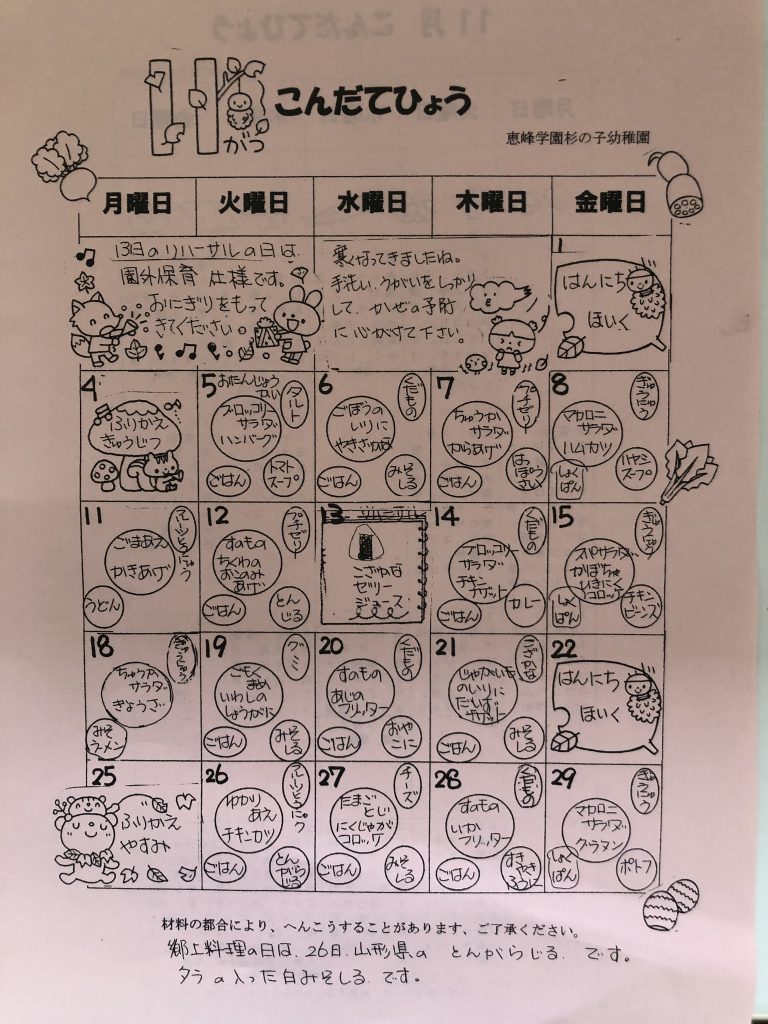 11がつ こんだてひょう
恵峰学園杉の子幼稚園
月曜日 火曜日 水曜日 木曜日 金曜日
13日のリハーサルの日は、
園外保育 仕様です。
おにぎりをもって
きてください。
寒くなってきましたね。
手洗い、うがいをしっかり
して、かぜの予防
に心がけて下さい。
1
はんにち
ほいく
4
ふりかえ
きゅうじつ
5
おたんじょう
かい
タルト
ブロッコリー
サラダ
ハンバーグ
ごはん
トマト
スープ
6
くだもの
ごぼうの
いりに
やきざかな
ごはん
みそ
しる
7
プチゼリー
ちゅうか
サラダ
からあげ
ごはん
はっぽう
さい
8
ぎゅうにゅう
マカロニ
サラダ
ハムカツ
しょく
ぱん
ハヤシ
スープ
11
フルーツとうにゅう
ごまあえ
かきあげ
うどん
12
プチゼリー
すのもの
ちくわの
おこのみ
あげ
ごはん
とん
じる
13
リハーサル
こざかな
ゼリー
ジュース
14
くだもの
ブロッコリー
サラダ
チキン
ナゲット
ごはん
カレー
15
ぎゅうにゅう
スパサラダ
かぼちゃ
ひきにく
コロッケ
しょく
ぱん
チキン
ビーンズ
18
ぎゅうにゅう
ちゅうか
サラダ
ぎょうざ
みそ
ラーメン
19
グミ
ごもく
まめ
いわしの
しょうがに
ごはん
みそ
しる
20
くだもの
すのもの
あじの
フリッター
ごはん
おや
こに
21
こざかな
じゃがいも
のいりに
だいず
ナゲット
ごはん
みそ
しる
22
はんにち
ほいく
25
ふりかえ
やすみ
26
フルーツとうにゅう
ゆかり
あえ
チキンカツ
ごはん
とん
がら
じる
27
チーズ
たまご
とじ
にくじゃが
コロッケ
ごはん
みそ
しる
28
くだもの
すのもの
いか
フリッター
ごはん
すき
やき
ふうに
29
ぎゅうにゅう
マカロニ
サラダ
グラタン
しょく
ぱん
ポトフ
材料の都合により、へんこうすることがあります、ご了承ください。
郷土料理の日は、26日、山形県の とんがらじる です。
タラの入った白みそしる です。